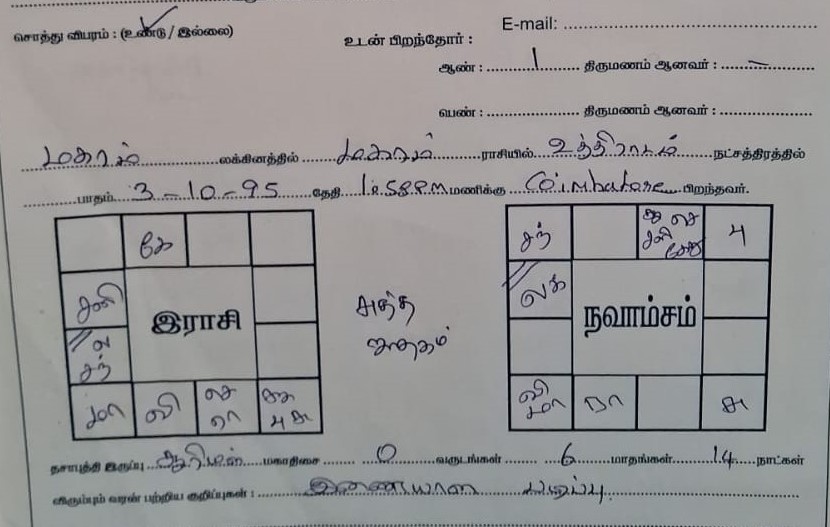 E-mail:
சொத்து விபரம் : (உண்டு / இல்லை)
உடன் பிறந்தோர் :
ஆண் : 1 திருமணம் ஆனவர் : –
பெண் : திருமணம் ஆனவர் :
மகரம் லக்கினத்தில் மகரம் ராசியில் உத்திராடம் நட்சத்திரத்தில்
பாதம் 3-10-95 தேதி மணிக்கு Coimbatore பிறந்தவர்.
கே
சனி
ல
சந்
மா
வி
செ
ரா
பு சு
இராசி
சுத்த
ஜாதகம்
சந்
செ
சனி
பு
லக்
நவாம்சம்
வி
மா
ரா
சு
தசாபுத்தி இருப்பு மகாதிசை 0 வருடங்கள் 6 மாதங்கள் 14 நாட்கள்
விரும்பும் வரன் பற்றிய குறிப்புகள் : இணையான படிப்பு.